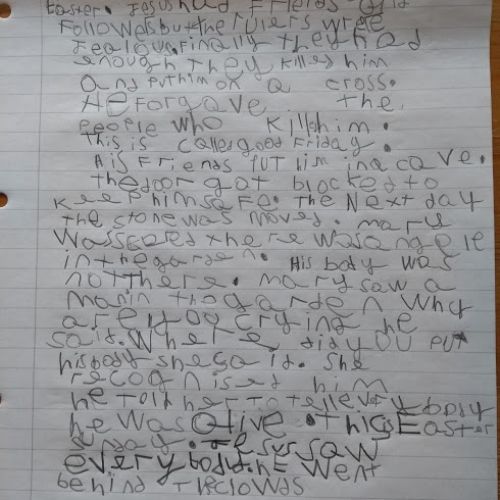 Easter. Jesus had Friends and
Followers but the rulers wrere
Jealous. Finally they had
enough They killed him
and put him on a cross.
He forgave the
people who killshim.
This is called good Friday.
His Friends put him in a cave.
the door got blocked to
keep him safe. The Next day
the stone was moved. mary
Was scared there was angele
in the garden. His body was
not there. mary saw a
man in the garden Why
are you crying he
said. Where did you put
his body she said. She
recognised him
he told her to tell every body
he was alive. This Easter
sunday. Jesus saw
every body. he went
behind the clowds